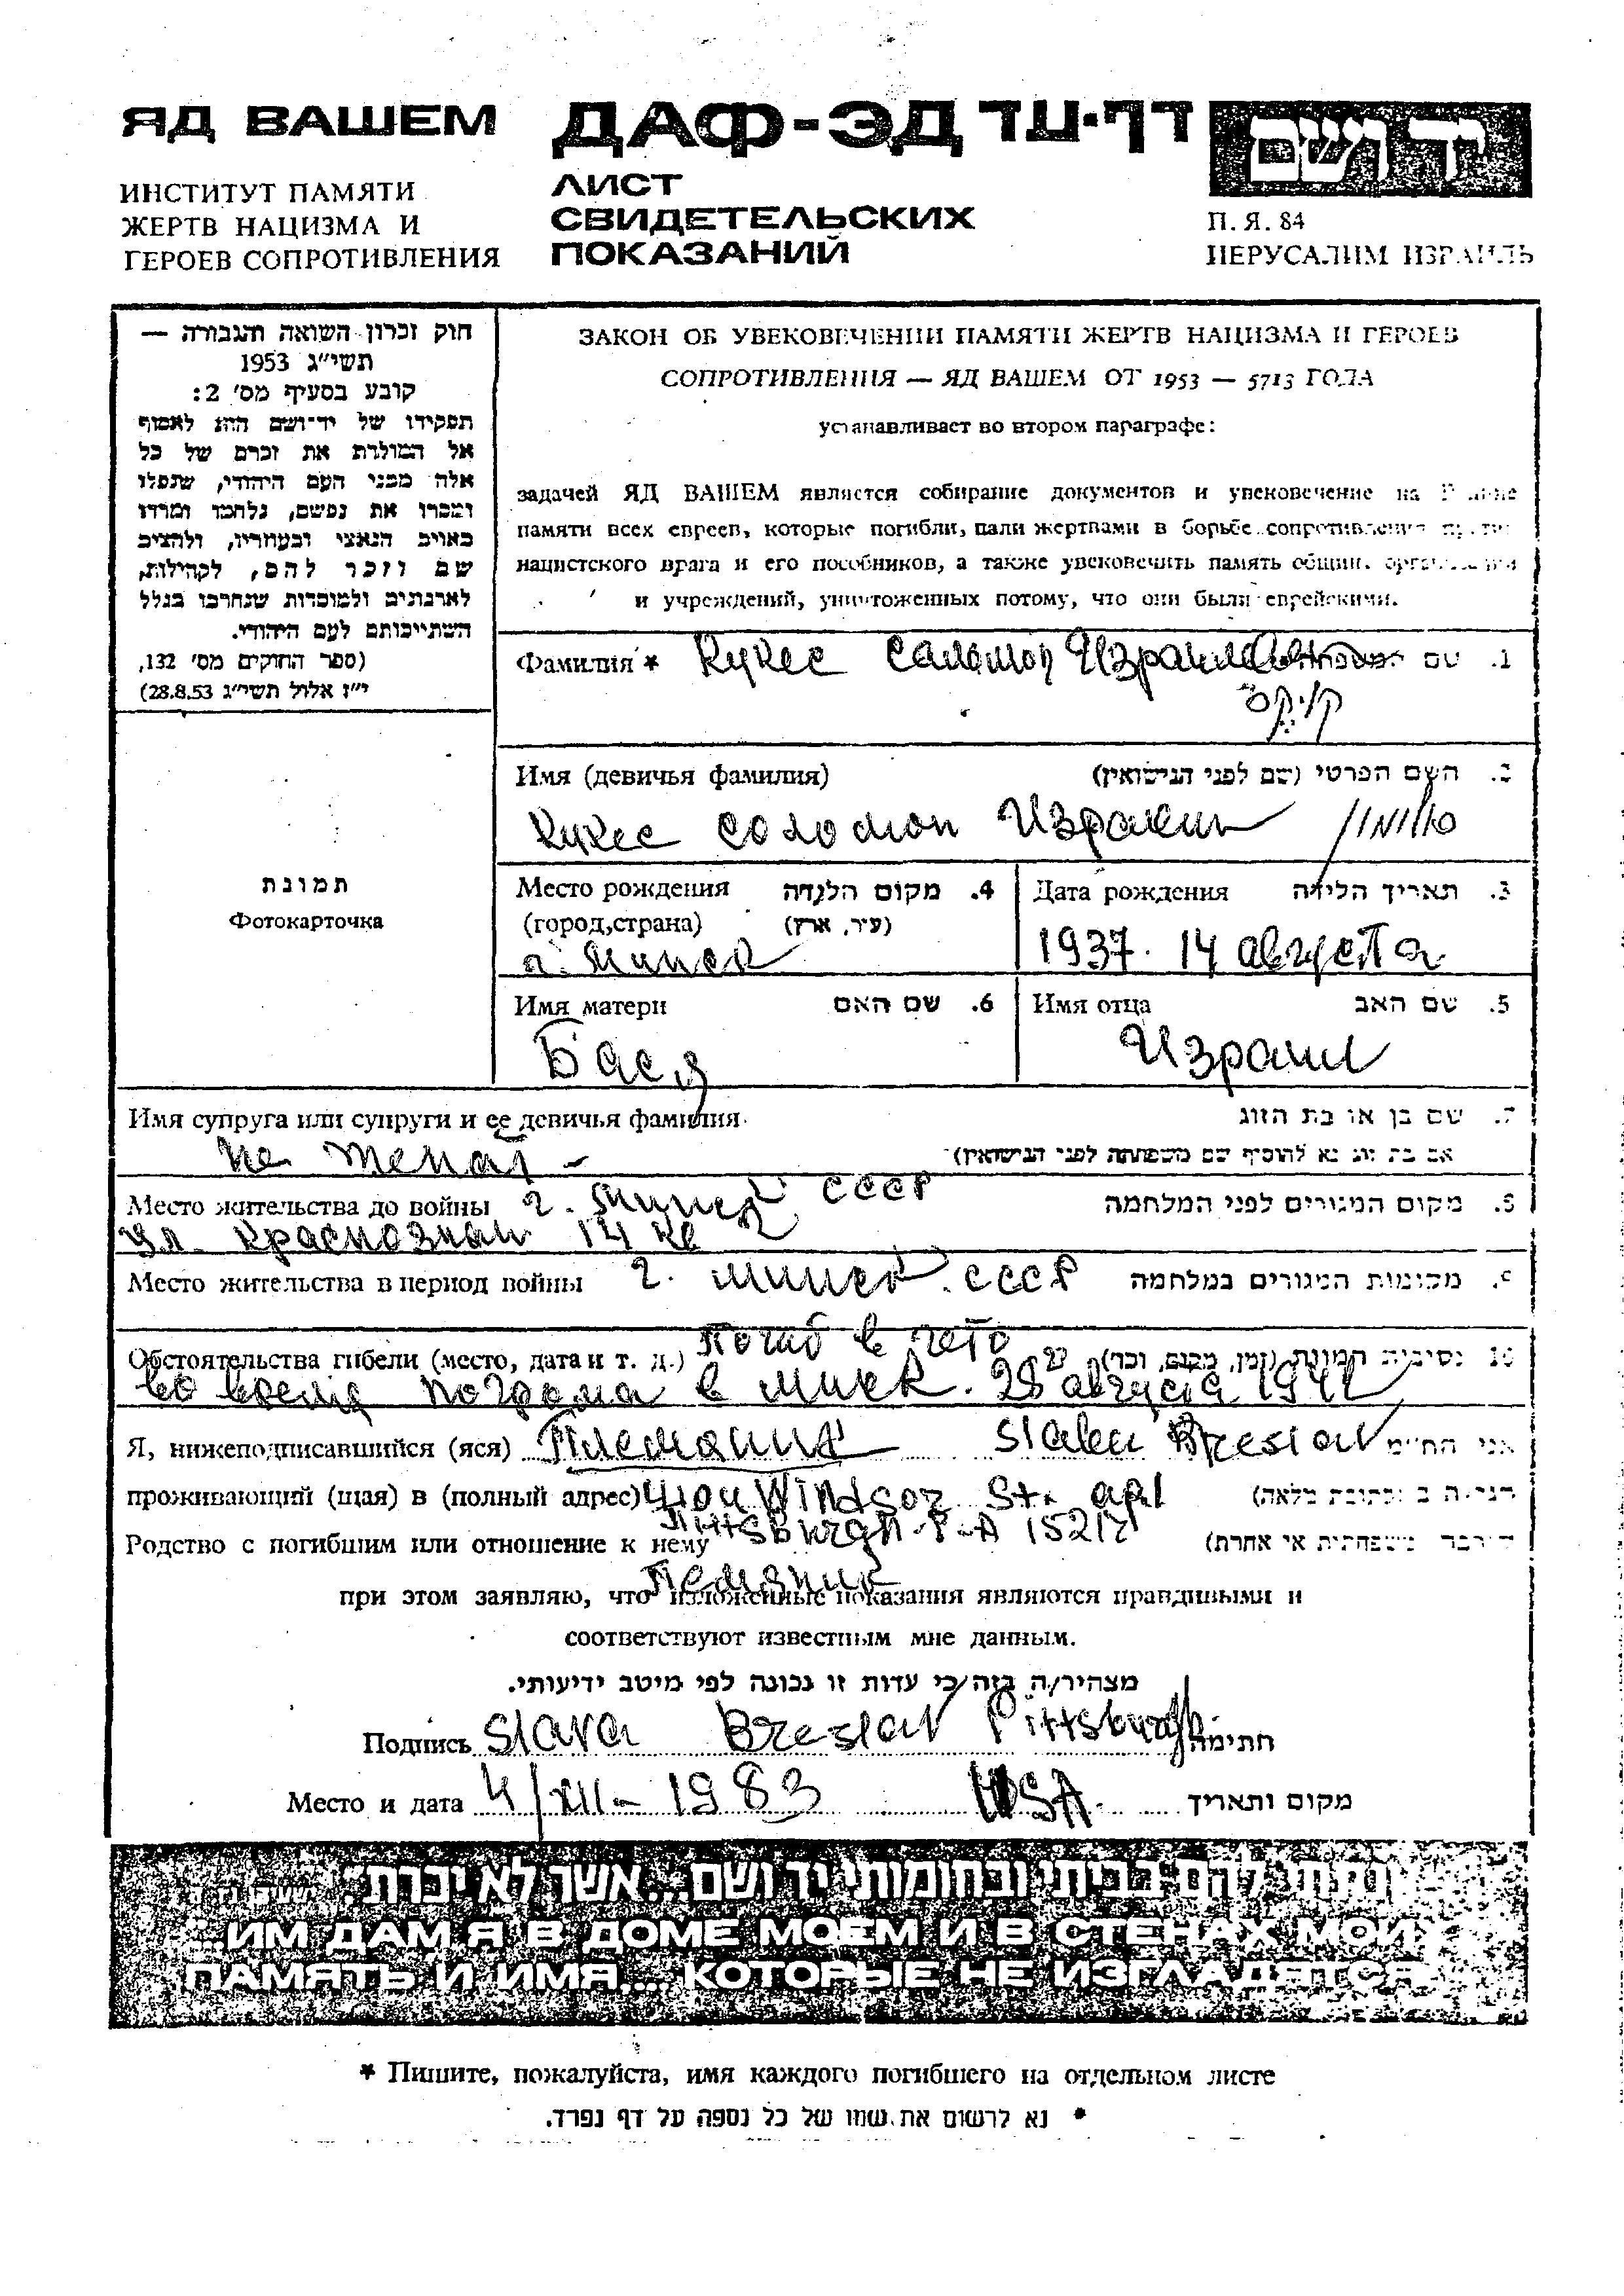 ЯД ВАШЕМ
ИНСТИТУТ ПАМЯТИ
ЖЕРТВ НАЦИЗМА И
ГЕРОЕВ СОПРОТИВЛЕНИЯ
ДАФ-ЭД דף-עד
ЛИСТ
СВИДЕТЕЛЬСКИХ
ПОКАЗАНИЙ
יד ושם
П. Я. 84
ИЕРУСАЛИМ ИЗРАИЛЬ
חוק זכרון השואה והגבורה —
תשי״ג 1953
קובע בסעיף מס׳ 2:
תפקידו של יד־ושם הוא לאסוף
אל המולדת את זכרם של כל
אלה מבני העם היהודי, שנפלו
ומסרו את נפשם, נלחמו ומרדו
באויב הנאצי ובעוזריו, ולהציב
שם וזכר להם, לקהילות,
לארגונים ולמוסדות שנחרבו בגלל
השתייכותם לעם היהודי.
(ספר החוקים מס׳ 132,
י״ז אלול תשי״ג 28.8.53)
ЗАКОН ОБ УВЕКОВЕЧЕНИИ ПАМЯТИ ЖЕРТВ НАЦИЗМА И ГЕРОЕВ
СОПРОТИВЛЕНИЯ — ЯД ВАШЕМ ОТ 1953 — 5713 ГОДА
устанавливает во втором параграфе:
задачей ЯД ВАШЕМ является собирание документов и увековечение на
памяти всех евреев, которые погибли, пали жертвами в борьбе сопротивления против
нацистского врага и его пособников, а также увековечить память общин, организаций
и учреждений, уничтоженных потому, что они были еврейскими.
Фамилия * Кукес Саломон שם המשפחה .1
קוקס
Имя (девичья фамилия) השם הפרטי (שם לפני הנישואין) .2
Кукес Соломон Израил
Место рождения מקום הלידה .4
(город,страна) (עיר, ארץ)
г. Минск
Дата рождения תאריך הלידה .3
1937. 14 августа
Имя матери שם האם .6
Бася
Имя отца שם האב .5
Израил
תמונת
Фотокарточка
Имя супруга или супруги и ее девичья фамилия שם בן או בת הזוג .7
не женат - אם בת זוג נא להוסיף שם משפחתה לפני הנישואין)
Место жительства до войны г. Минск СССР מקום המגורים לפני המלחמה .8
ул. Краснозная 14 кв 2
Место жительства в период войны г. Минск. СССР מקומות המגורים במלחמה .9
Погиб в гето
Обстоятельства гибели (место, дата и т. д.) נסיבות המוות (זמן, מקום, וכו׳) 10
во время погрома в Минск. 28 августа 1941
Я, нижеподписавшийся (яся) Племяник Slava Breslav אני החי״מ
проживающий (щая) в (полный адрес) Windsor St. apt
Pittsburgh P-A 15217
Родство с погибшим или отношение к нему
Племяник
при этом заявляю, что изложенные показания являются правдивыми и
соответствуют известным мне данным.
מצהיר/ה בזה כי עדות זו נכונה לפי מיטב ידיעותי.
Подпись Slava Breslav Pittsburgh. חתימה
Место и дата 4/XII - 1983 USA. מקום ותאריך
ונתתי להם בביתי ובחומותי יד ושם...אשר לא יכרת.
...ИМ ДАМ Я В ДОМЕ МОЕМ И В СТЕНАХ МОИХ
ПАМЯТЬ И ИМЯ... КОТОРЫЕ НЕ ИЗГЛАДЯТСЯ
* Пишите, пожалуйста, имя каждого погибшего на отдельном листе
* נא לרשום את שמו של כל נספה על דף נפרד.